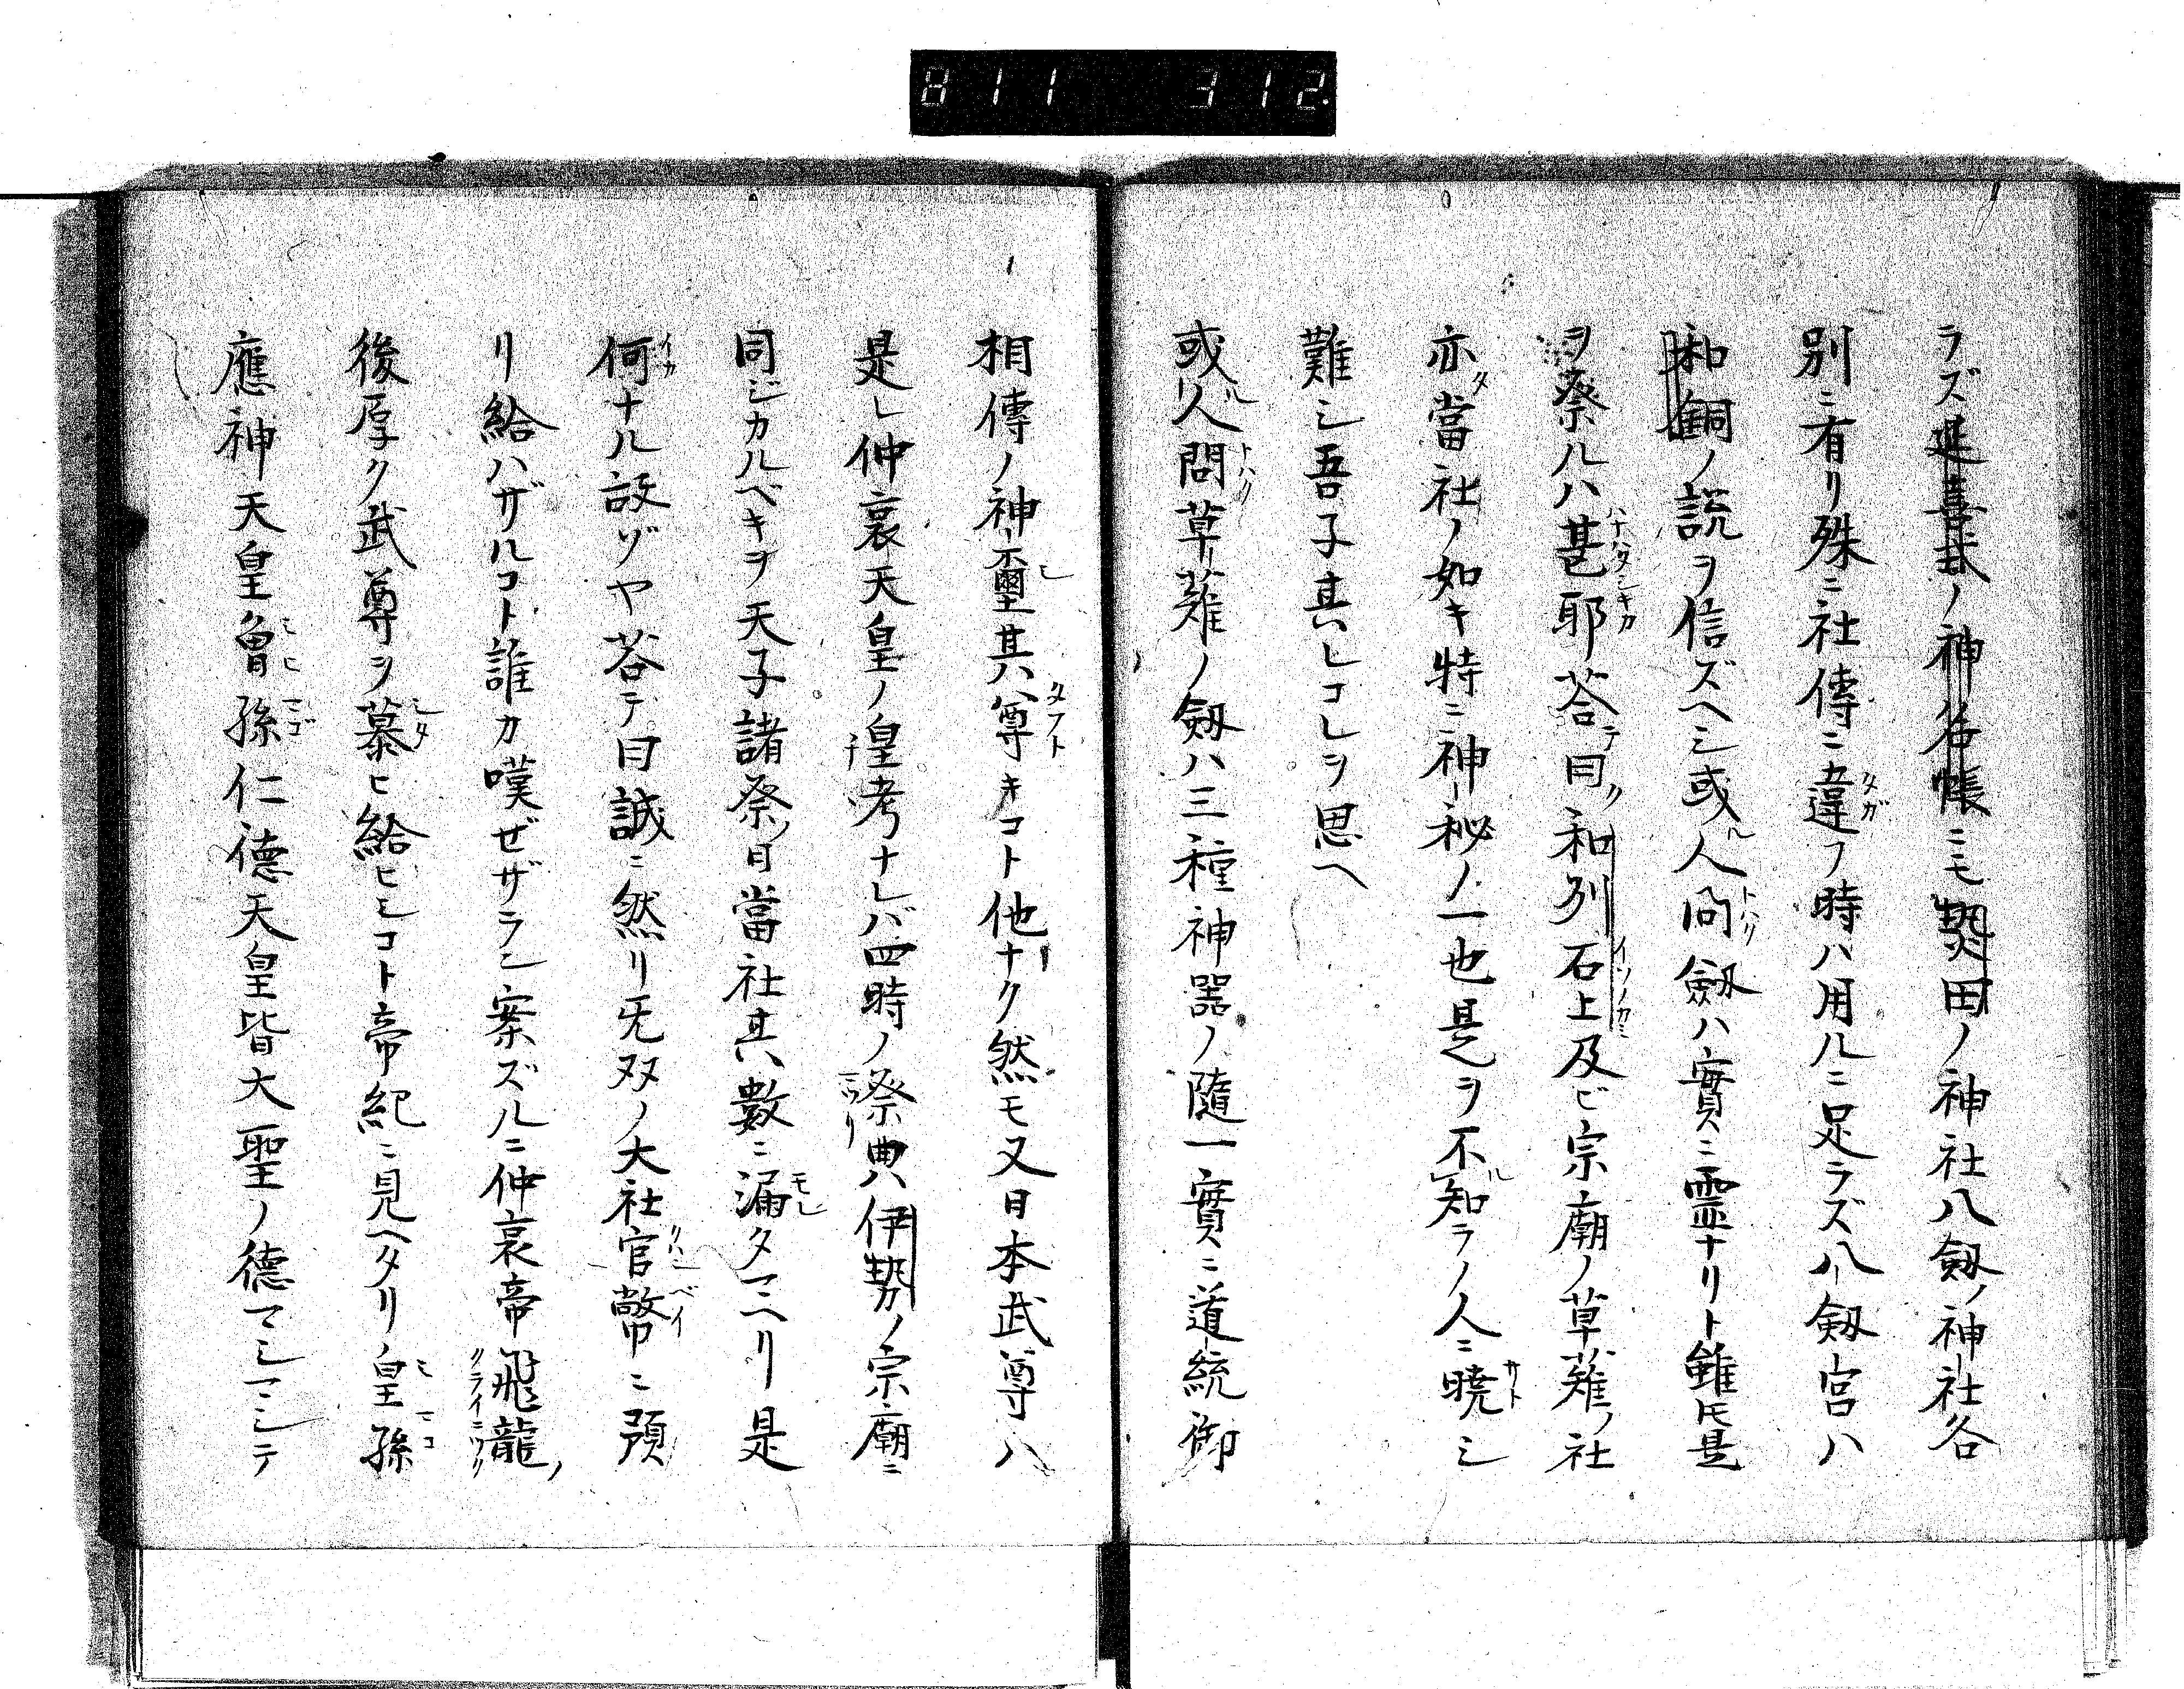 811 312.
ラズ延喜式ノ神名帳ニモ熱田ノ神社八劔ノ神社各
別ニ有リ殊ニ社傳ニ違フ時ハ用ルニ足ラズ八劔宮ハ
和銅ノ説ヲ信ズヘシ或人問劔ハ實ニ霊ナリト雖𪜈是
ヲ祭ルハ甚耶荅曰和列石上及ビ宗廟ノ草薙ノ社
亦當社ノ如キ特ニ神秘ノ一也是ヲ不知ラノ人ニ曉シ
難シ吾子其レコレヲ思ヘ
或人問草薙ノ劔ハ三種神器ノ隨一實ニ道統御
相傳ノ神璽其尊キコト他ナク然モ又日本武尊ハ
是レ仲哀天皇ノ皇考ナレバ四時ノ祭典ハ伊勢ノ宗廟ニ
同ジカルベキヲ天子諸祭ノ日當社其數ニ漏タマヘリ是
何ナル故ゾヤ荅テ曰誠ニ然リ无双ノ大社官幣ニ預
リ給ハザルコト誰カ嘆ゼザラン案ズルニ仲哀帝飛龍ノ
後厚ク武尊ヲ慕ヒ給ヒシコト帝紀ニ見ヘタリ皇孫
應神天皇曾孫仁德天皇皆大聖ノ德マシマシテ